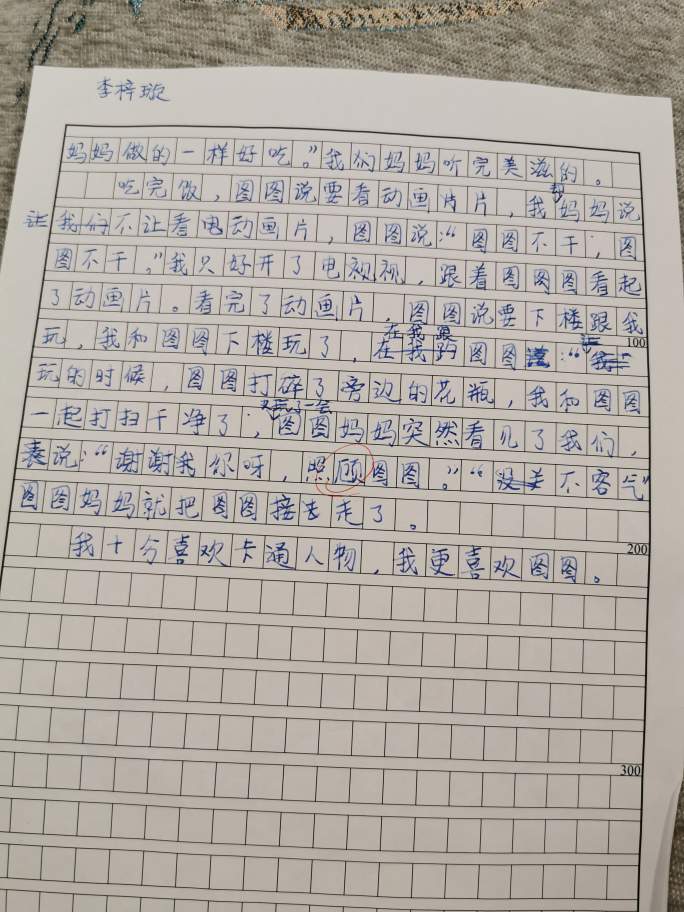 李梓璇
妈妈做的一样好吃。”我们妈妈听完美滋的。
吃完饭，图图说要看动画片片，我妈妈说
让我们不让看电动画片，图图说：“图图不干，图
图不干。”我只好开了电视视，跟着图图图看起
了动画片。看完了动画片，图图说要下楼跟我
在我跟
玩，我和图图下楼玩了，在我跟图图：“我
100
玩的时候，图图打碎了旁边的花瓶，我和图图
又玩了一会
一起打扫干净了，图图妈妈突然看见了我们，
说：“谢谢我你呀，照顾图图。”“没关不客气”
图图妈妈就把图图接去走了。
200
我十分喜欢卡通人物，我更喜欢图图。
300